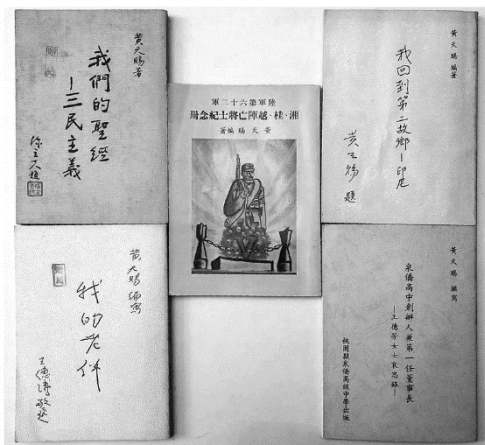 黃天賜著
我們的聖經
─三民主義
陸軍第六十二軍
湘·桂·越陣亡將士紀念冊
黃天賜編著
黃天賜 編著
我回到第二故鄉─印尼
黃天賜 題
黃天賜 編寫
我的老伴
王德溥敬題
黃天賜 編寫
泉僑高中創辦人兼第一任董事長
─王德芳女士哀思錄─
桃園縣泉僑高級中學出版